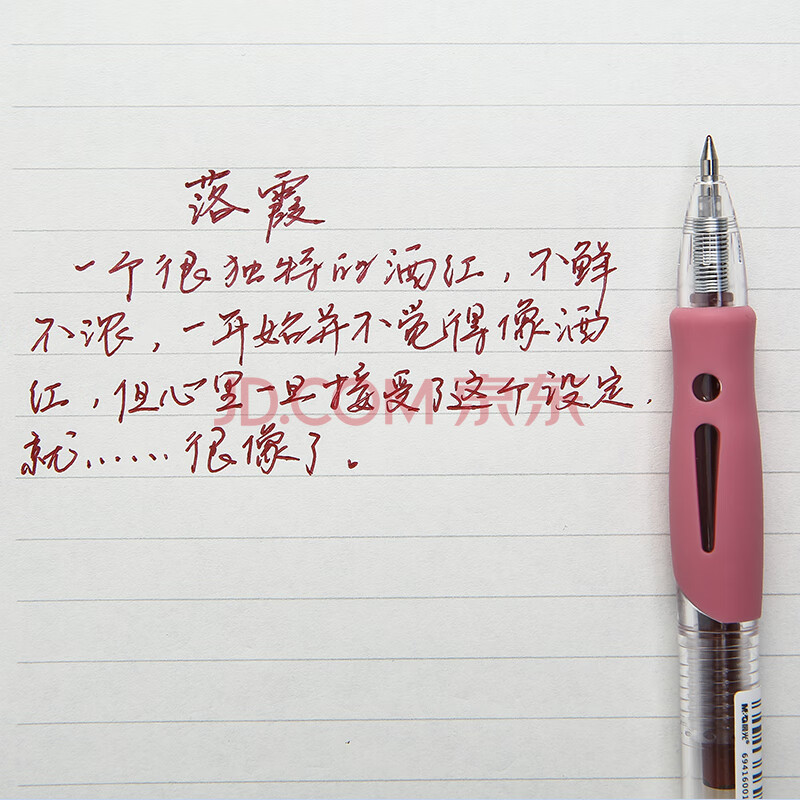 落霞
一个很独特的酒红，不鲜
不浓，一开始并不觉得像酒
红，但心里一旦接受了这个设定，
就……很像了。
JD.COM 京东
M&G 晨光
69416001